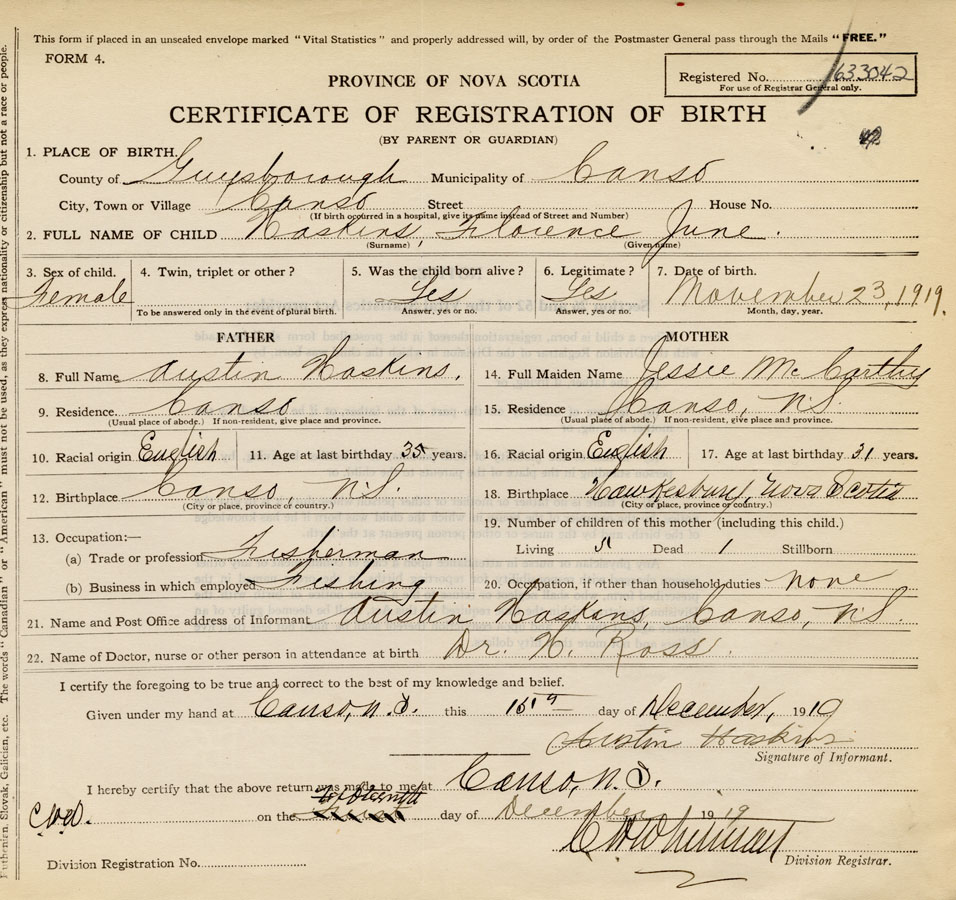 This form if placed in an unsealed envelope marked "Vital Statistics" and properly addressed will, by order of the Postmaster General pass through the Mails "FREE."
FORM 4.
Registered No. 633042
For use of Registrar General only.
PROVINCE OF NOVA SCOTIA
CERTIFICATE OF REGISTRATION OF BIRTH
(BY PARENT OR GUARDIAN)
1. PLACE OF BIRTH.
County of Guysborough Municipality of Canso
City, Town or Village Canso Street House No.
(If birth occurred in a hospital, give its name instead of Street and Number)
2. FULL NAME OF CHILD Haskins, Florence June.
(Surname) (Given name)
3. Sex of child. 4. Twin, triplet or other? 5. Was the child born alive? 6. Legitimate? 7. Date of birth.
Female Yes Yes November 23, 1919.
To be answered only in the event of plural birth. Answer, yes or no. Answer, yes or no. Month, day, year.
FATHER MOTHER
8. Full Name Austin Haskins. 14. Full Maiden Name Jessie McCarthy
9. Residence Canso 15. Residence Canso, N.S.
(Usual place of abode.) If non-resident, give place and province. (Usual place of abode.) If non-resident, give place and province.
10. Racial origin English 11. Age at last birthday 35 years. 16. Racial origin English 17. Age at last birthday 31 years.
12. Birthplace Canso, N.S. 18. Birthplace Hawkesbury, Nova Scotia
(City or place, province or country.) (City or place, province or country.)
13. Occupation:— 19. Number of children of this mother (including this child.)
(a) Trade or profession Fisherman Living 5 Dead 1 Stillborn
(b) Business in which employed Fishing 20. Occupation, if other than household duties none
21. Name and Post Office address of Informant Austin Haskins, Canso, N.S.
22. Name of Doctor, nurse or other person in attendance at birth Dr. H. Ross.
I certify the foregoing to be true and correct to the best of my knowledge and belief.
Given under my hand at Canso, N.S. this 15th day of December, 1919
Austin Haskins
Signature of Informant.
I hereby certify that the above return was made to me at Canso, N.S.
C.W.D. on the day of December 1919
Division Registration No. Division Registrar.
Ruthenian, Slovak, Galician, etc. The words "Canadian" or "American" must not be used, as they express nationality or citizenship but not a race or people.